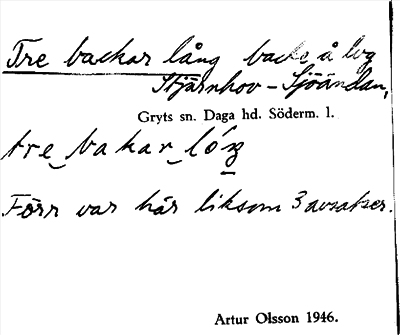 Tre backar lång backe å lvg
Stjärnhov - Sjöändan,
Gryts sn. Daga hd. Söderm. l.
tre bakar lóŋ
Förr var här liksom 3 avsatser.
Artur Olsson 1946.